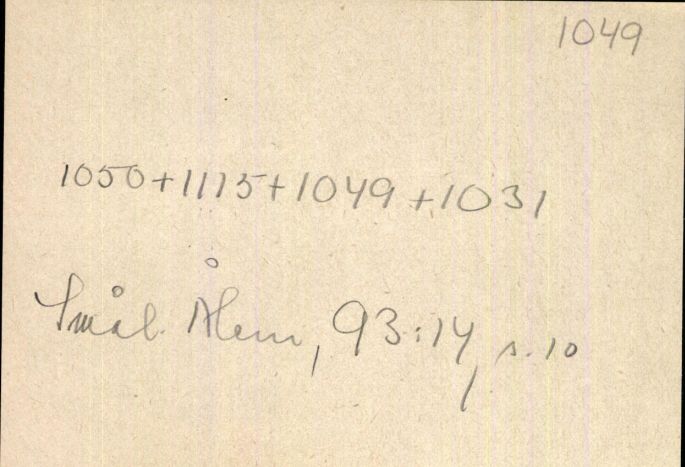 1049
1050+1115+1049+1031
Smål. Ålem, 93:14, s. 10